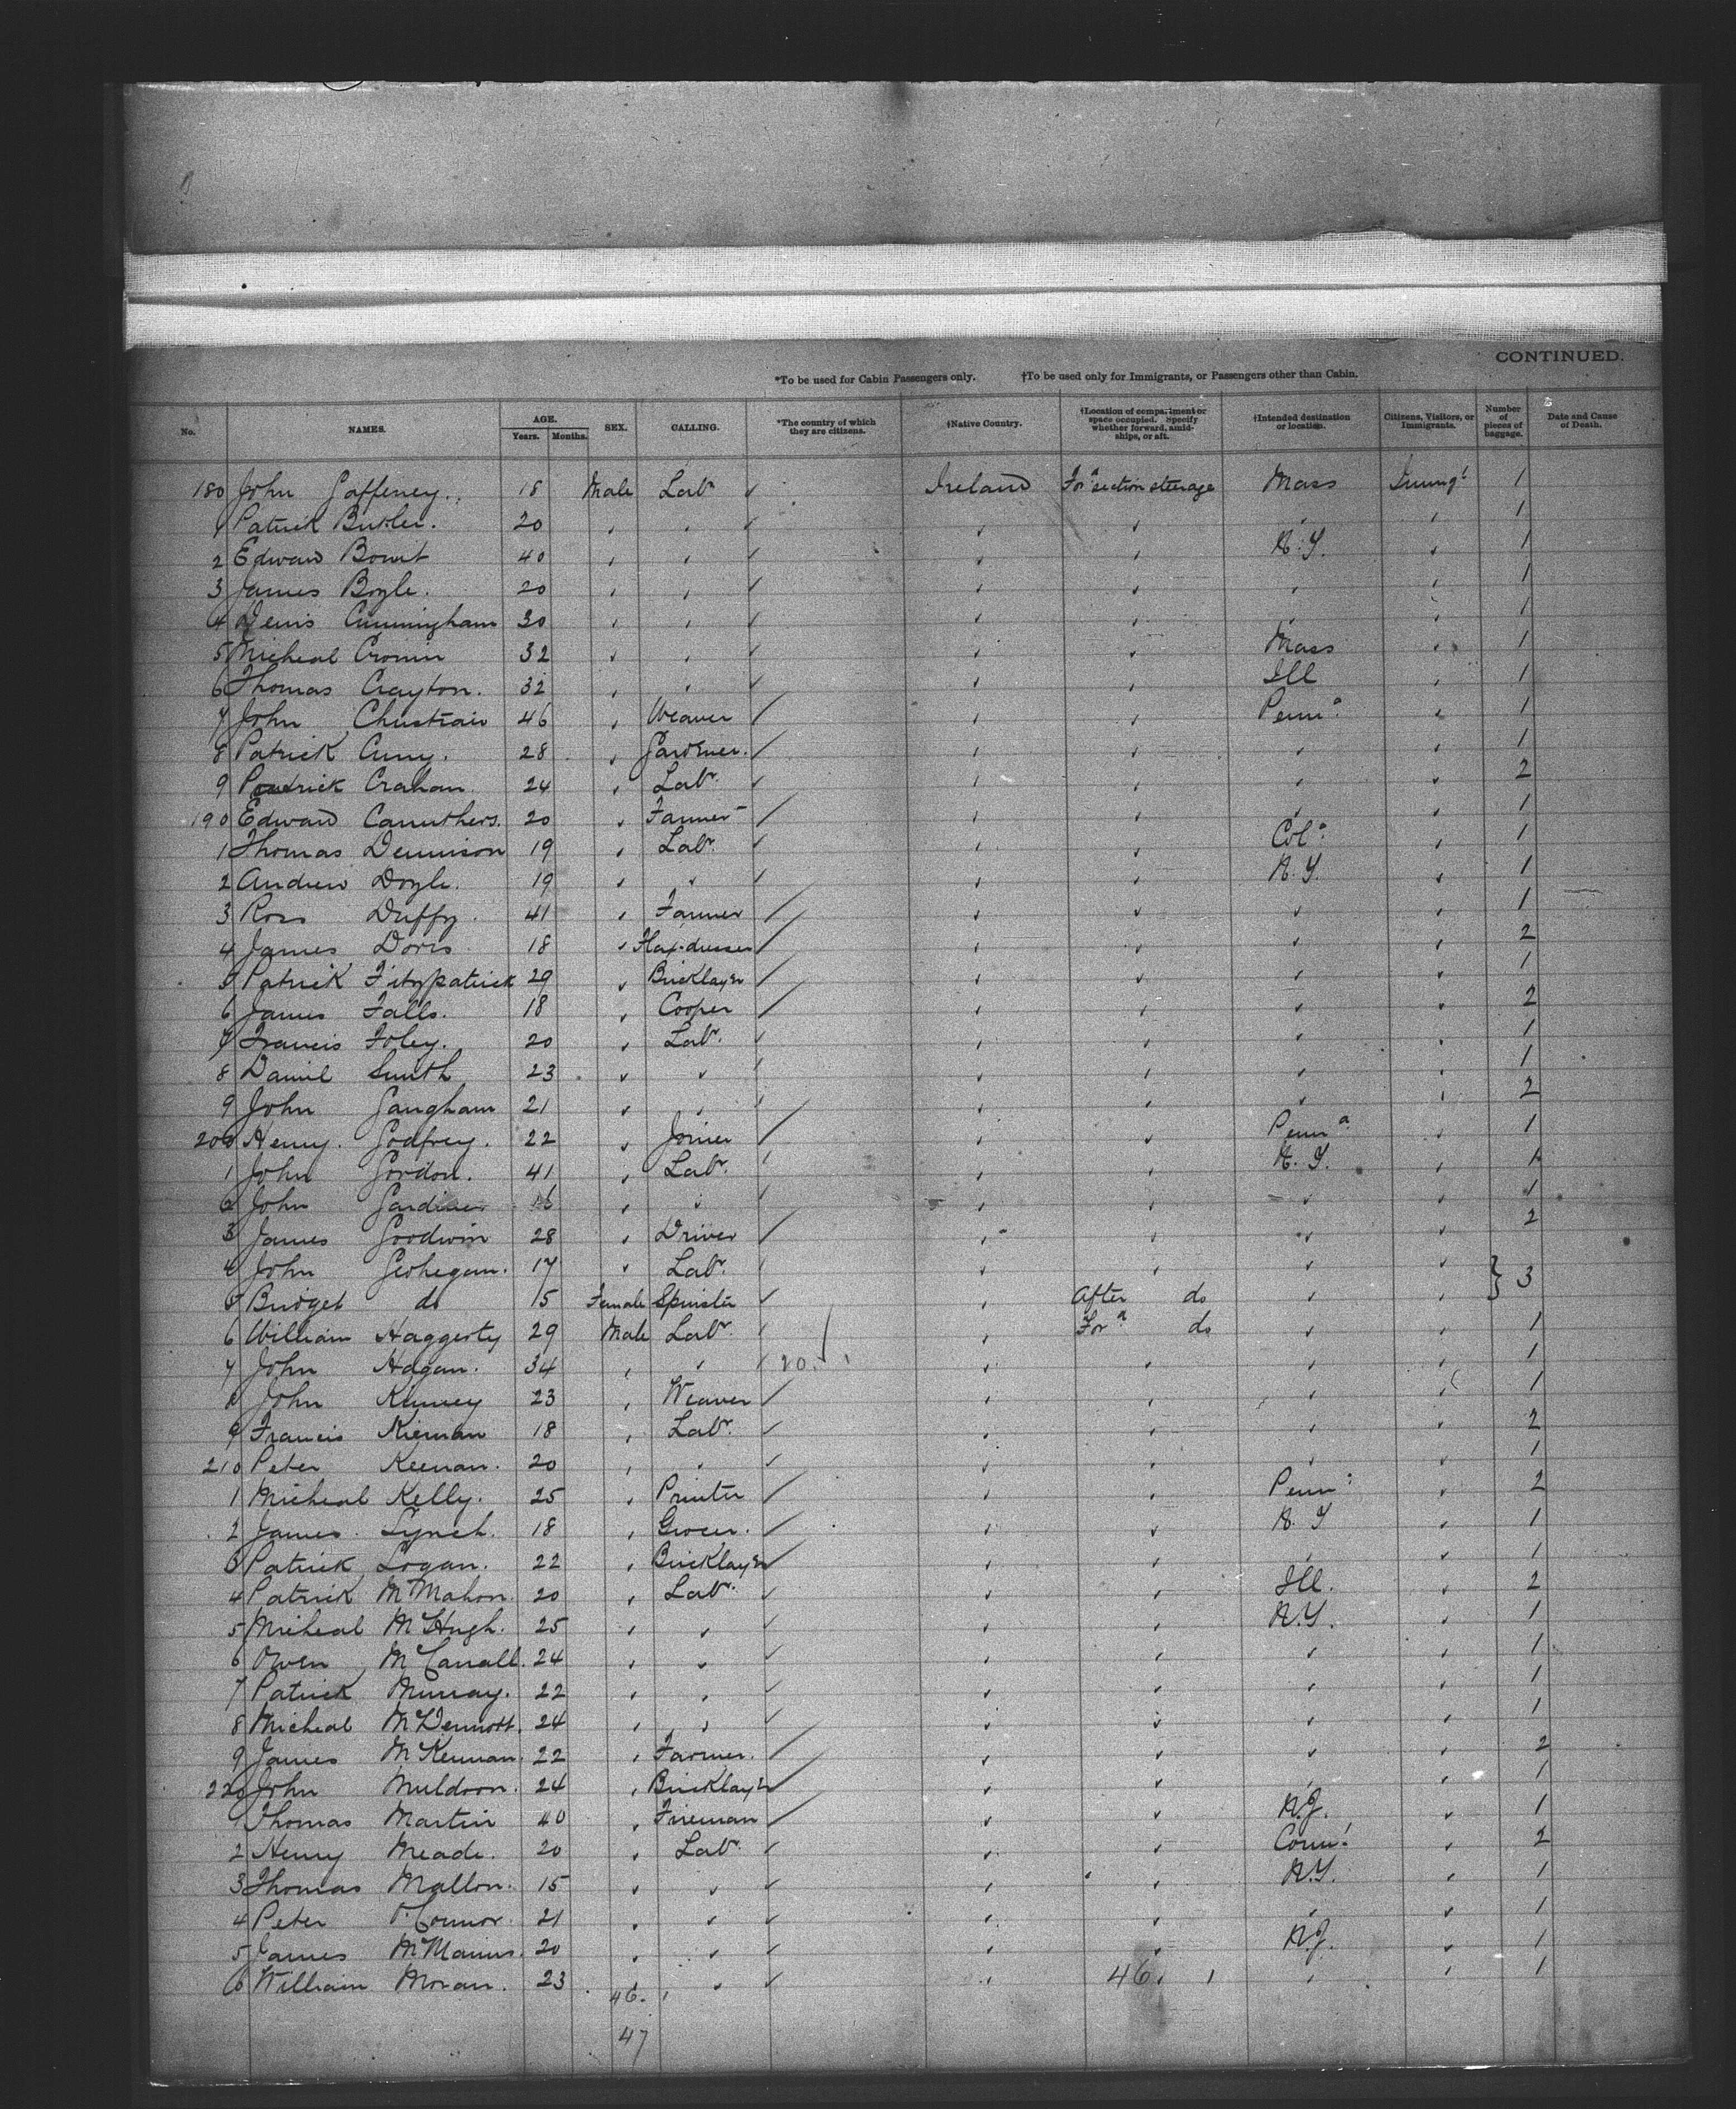 CONTINUED.
*To be used for Cabin Passengers only. †To be used only for Immigrants, or Passengers other than Cabin.
No. NAMES. AGE. Years. Months. SEX. CALLING. *The country of which they are citizens. †Native Country. †Location of compartment or space occupied. Specify whether forward, amidships, or aft. †Intended destination or location. Citizens, Visitors, or Immigrants. Number of pieces of baggage. Date and Cause of Death.
180 John Gaffeney 18 Male Labr ✓ Ireland For'd section steerage Mass Immigt 1
1 Patrick Butler. 20 " " ✓ " " " " 1
2 Edward Bowit 40 " " ✓ " " N.Y. " 1
3 James Boyle. 20 " " ✓ " " " " 1
4 Denis Cunningham 30 " " ✓ " " " " 1
5 Micheal Cronin 32 " " ✓ " " Mass " 1
6 Thomas Crayton. 32 " " ✓ " " Ill " 1
7 John Christian 46 " Weaver / " " Penna " 1
8 Patrick Curry. 28 " Gardener. / " " " " 1
9 Patrick Craham 24 " Labr. ✓ " " " " 2
190 Edward Carruthers. 20 " Farmer / " " " " 1
1 Thomas Dennison 19 " Labr. ✓ " " Colo " 1
2 Andrew Doyle. 19 " " ✓ " " N.Y. " 1
3 Ross Duffy. 41 " Farmer / " " " " 1
4 James Doris 18 " Flax-dresser / " " " " 2
5 Patrick Fitzpatrick 29 " Bricklayer / " " " " 1
6 James Falls. 18 " Cooper / " " " " 2
7 Francis Foley. 20 " Labr. ✓ " " " " 1
8 Daniel Smith 23 " " ✓ " " " " 1
9 John Gaugham 21 " " ✓ " " " " 2
200 Henry. Godfrey. 22 " Joiner / " " Penna " 1
1 John Gordon. 41 " Labr. ✓ " " N.Y. " 1
2 John Gardiner 16 " " ✓ " " " " 1
3 James Goodwin 28 " Driver / " " " " 2
4 John Geohegan. 17 " Labr. ✓ " " " " } 3
5 Bridget do 15 Female Spinster ✓ " After do " "
6 William Haggerty 29 Male Labr. ✓ " For'd do " " 1
7 John Hagan. 34 " " ✓ 20. " " " " 1
8 John Kenney 23 " Weaver / " " " " 1
9 Francis Kiernan 18 " Labr. ✓ " " " " 2
210 Peter Keenan. 20 " " ✓ " " " " 1
1 Micheal Kelly. 25 " Printer / " " Penna " 2
2 James. Lynch. 18 " Grocer. / " " N.Y " 1
3 Patrick Logan. 22 " Bricklayer / " " " " 1
4 Patrick McMahon. 20 " Labr. ✓ " " Ill. " 2
5 Micheal McHugh. 25 " " ✓ " " N.Y. " 1
6 Owen McCarrall. 24 " " ✓ " " " " 1
7 Patrick Murray. 22 " " ✓ " " " " 1
8 Micheal McDermott. 24 " " ✓ " " " " 1
9 James McKennan. 22 " Farmer. / " " " " 2
220 John Muldoon. 24 " Bricklayer / " " " " 1
1 Thomas Martin 40 " Fireman / " " N.J. " 1
2 Henry Meade. 20 " Labr. ✓ " " Connt " 2
3 Thomas Mallon. 15 " " ✓ " " N.Y. " 1
4 Peter O'Connor. 21 " " ✓ " " " " 1
5 James McManus. 20 " " ✓ " " N.J. " 1
6 William Moran. 23 " " ✓ " 46. 1 " " 1
46. 1
47